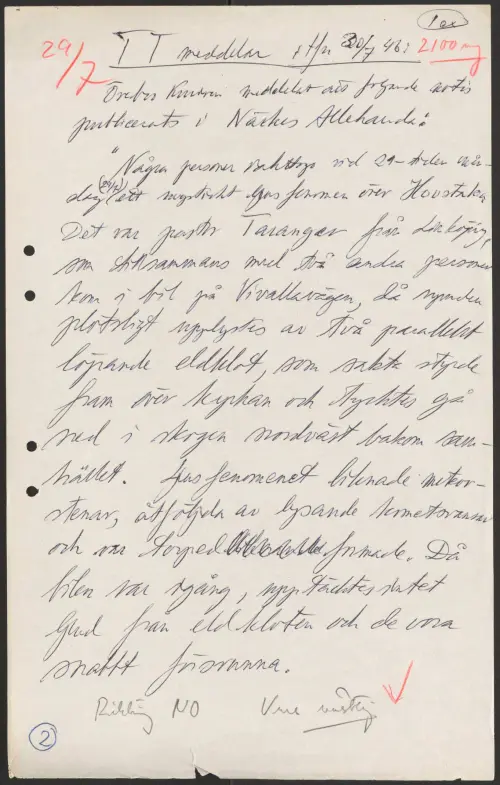 1 ex
29/7
TT meddelar 30/7 46: 2100
Örebro Kuriren meddelar att följande notis
publicerats i Närkes Allehanda:
"Några personer iakttogo vid 29-tiden mån-
dag (29/7) ett mystiskt ljusfenomen över Hovsta
Det var pastor Taranger från
som tillsammans med två andra personer
kom i bil på Vivallavägen, då nejden
plötsligt upplystes av två parallellt
löpande eldklot, som sakta styrde
fram över kyrkan och tycktes gå
ned i skogen nordväst bakom sam-
hället. Ljusfenomenet liknade meteor-
stenar, åtföljda av lysande kometsvansar
och var torpedformade. Då
bilen var igång, upptäcktes intet
ljud från eldkloten och de voro
snabbt försvunna.
Riktning NO
2